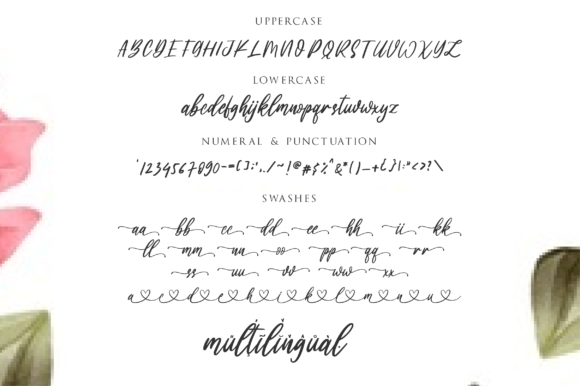 UPPERCASE
ABCDEFGHIJKLMNOPQRSTUVWXYZ
LOWERCASE
abcdefghijklmnopqrstuvwxyz
NUMERAL & PUNCTUATION
'1234567890-=[];',./~!@#$%^&*()_+{}|:"<>?\
SWASHES
aa bb cc dd ee hh ii kk
ll mm nn oo pp qq rr
ss uu vv ww xx
a c d e h i k l m n u
multilingual